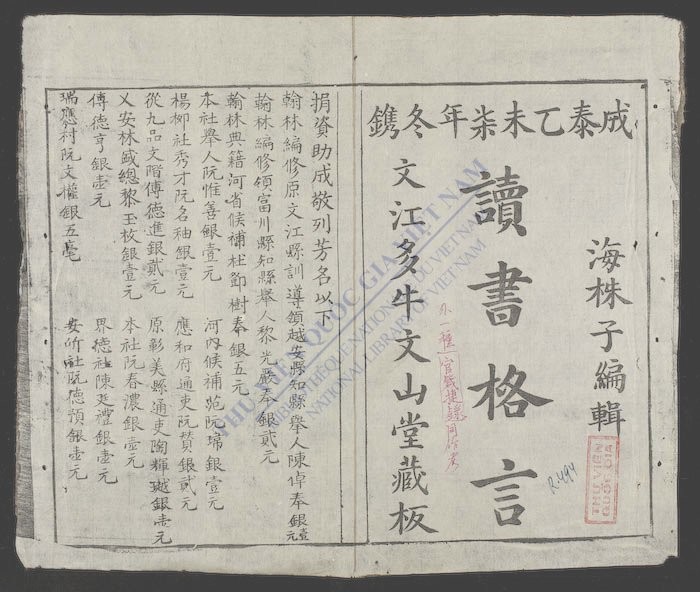 成泰乙未柒年冬鐫
海株子編輯
讀書格言
文江多牛文山堂藏板
捐資助成敬列芳名以下
翰林編修原文江縣訓導領越安縣知縣舉人陳倬奉銀壹元
翰林編修領富川縣知縣舉人黎光 奉銀貳元
翰林典籍河省候補杜節樹奉銀五元
本社舉人阮惟善銀壹元 河內候補范阮 銀壹元
楊柳社秀才阮名秞銀壹元 應和府通吏阮贊銀貳元
從九品文階傅德進銀貳元 原彰美縣通吏陶輝 銀壹元
乂安林盛總黎玉枚銀壹元 本社阮春濃銀壹元
傅德亨銀壹元 界德社陳廷禮銀壹元
瑞應村阮文權銀五毫 安 社阮德預銀壹元
THƯ VIỆN QUỐC GIA VIỆT NAM
BIBLIOTHÈQUE NATIONALE DU VIETNAM
NATIONAL LIBRARY OF VIETNAM
R.494
THƯ VIỆN
QUỐC GIA